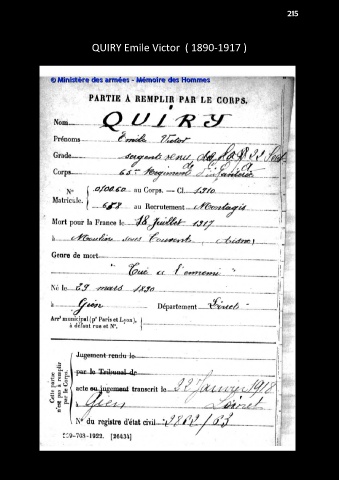 215
QUIRY Emile Victor ( 1890-1917 )
© Ministère des armées - Mémoire des Hommes
PARTIE À REMPLIR PAR LE CORPS.
Nom QUIRY
Prénoms Emile Victor
Grade sergent
Corps 65e Régiment d'Infanterie
N° 010060 au Corps. — Cl. 1910
Matricule. 658 au Recrutement Montargis
Mort pour la France le 18 juillet 1917
à Moulins sous Touvent (Aisne)
Genre de mort
"Tué à l'ennemi"
Né le 29 mars 1890
à Gien Département Loiret
Arrt municipal (pr Paris et Lyon),
à défaut rue et N°.
Cette partie
n'est pas à remplir
par le Corps.
Jugement rendu le
par le Tribunal de
acte ou jugement transcrit le 22 Janvier 1918
à Gien Loiret
N° du registre d'état civil 2822/63
-708-1922. [26434]